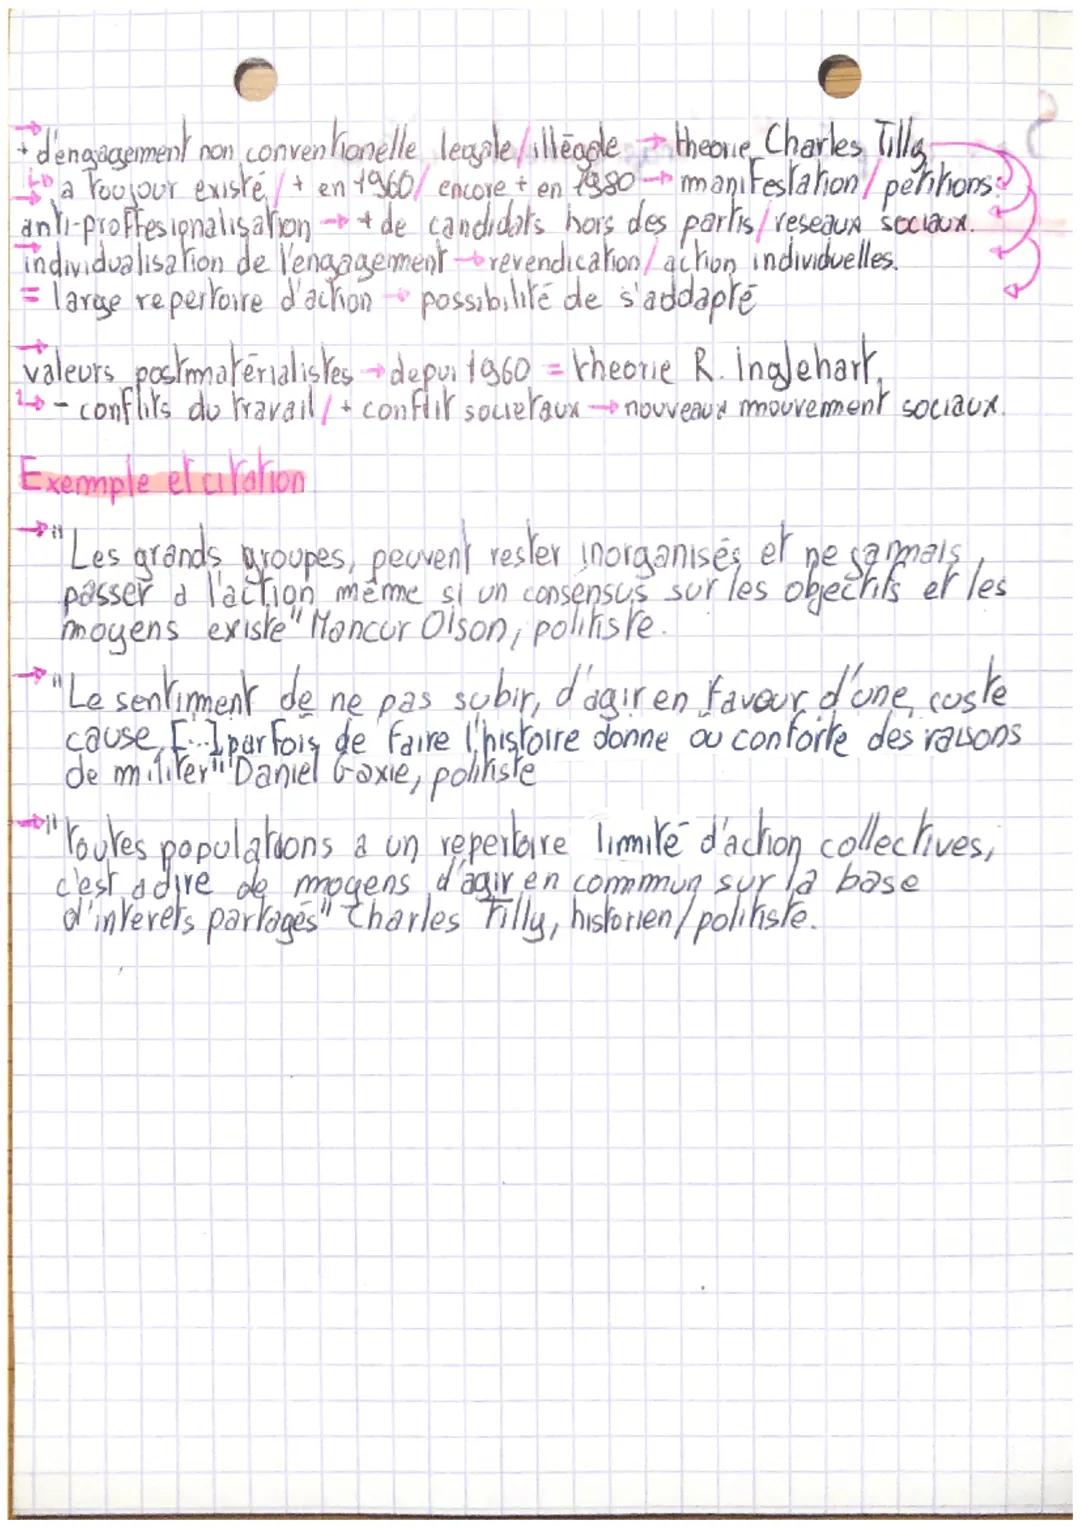 → + d'engagement non conventionelle legale/illégale → theorie Charles Tilly
↳ a toujour existé / + en 1960/ encore + en 1980 → manifestation / petitions
→ anti-proffesionalisation → + de candidats hors des partis/reseaux sociaux.
→ individualisation de l'engagement → revendication/action individuelles.
= large repertoire d'action → possibilité de s'addapté
→ valeurs postmatérialistes → depui 1960 = theorie R. Inglehart
↳ - conflits du travail / + conflit societaux → nouveaux mouvement sociaux.
Exemple et citation
→ "Les grands groupes, peuvent rester inorganisés et ne jamais
passer a l'action même si un consensus sur les objectifs et les
moyens existe" Mancur Olson, politiste.
→ "Le sentiment de ne pas subir, d'agir en faveur d'une juste
cause, [...] parfois de faire l'histoire donne ou conforte des raisons
de militer" Daniel Gaxie, politiste
→ "Toutes populations a un repertoire limité d'action collectives,
c'est a dire de moyens d'agir en commun sur la base
d'interets partagés" Charles Tilly, historien/politiste.